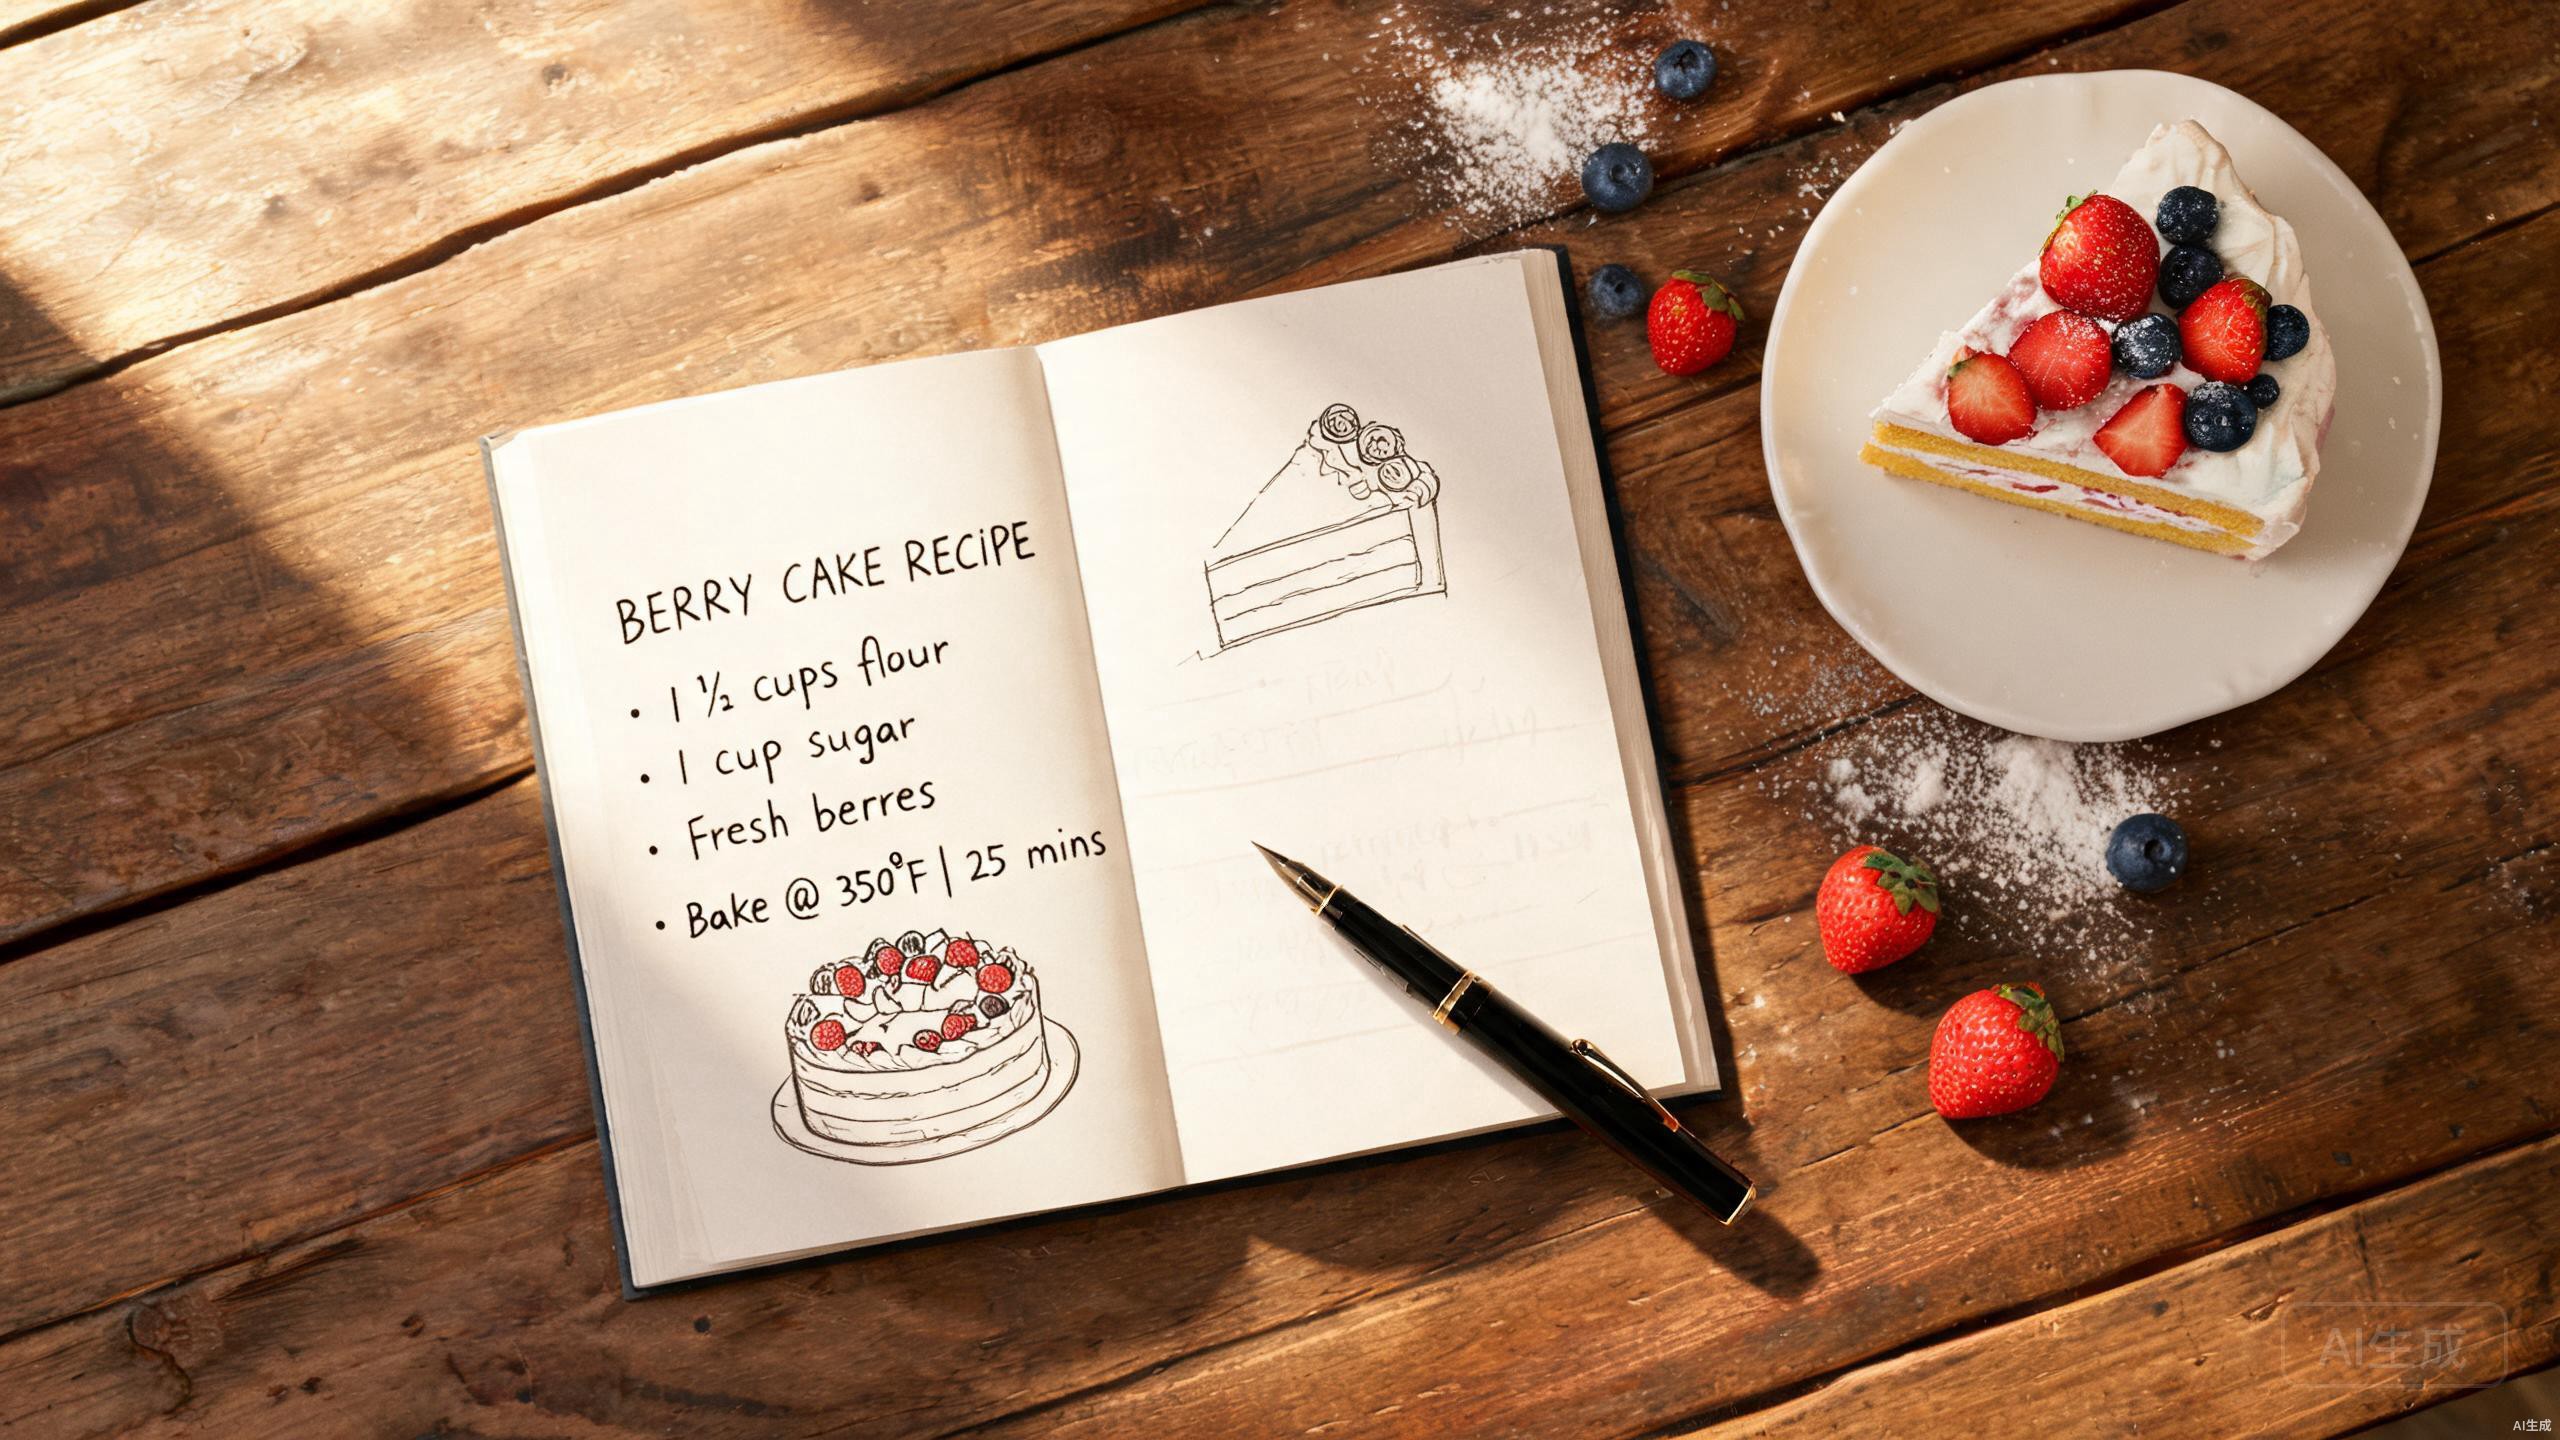 BERRY CAKE RECIPE
• 1 ½ cups flour
• 1 cup sugar
• Fresh berres
• Bake @ 350°F | 25 mins
AI生成
AI生成